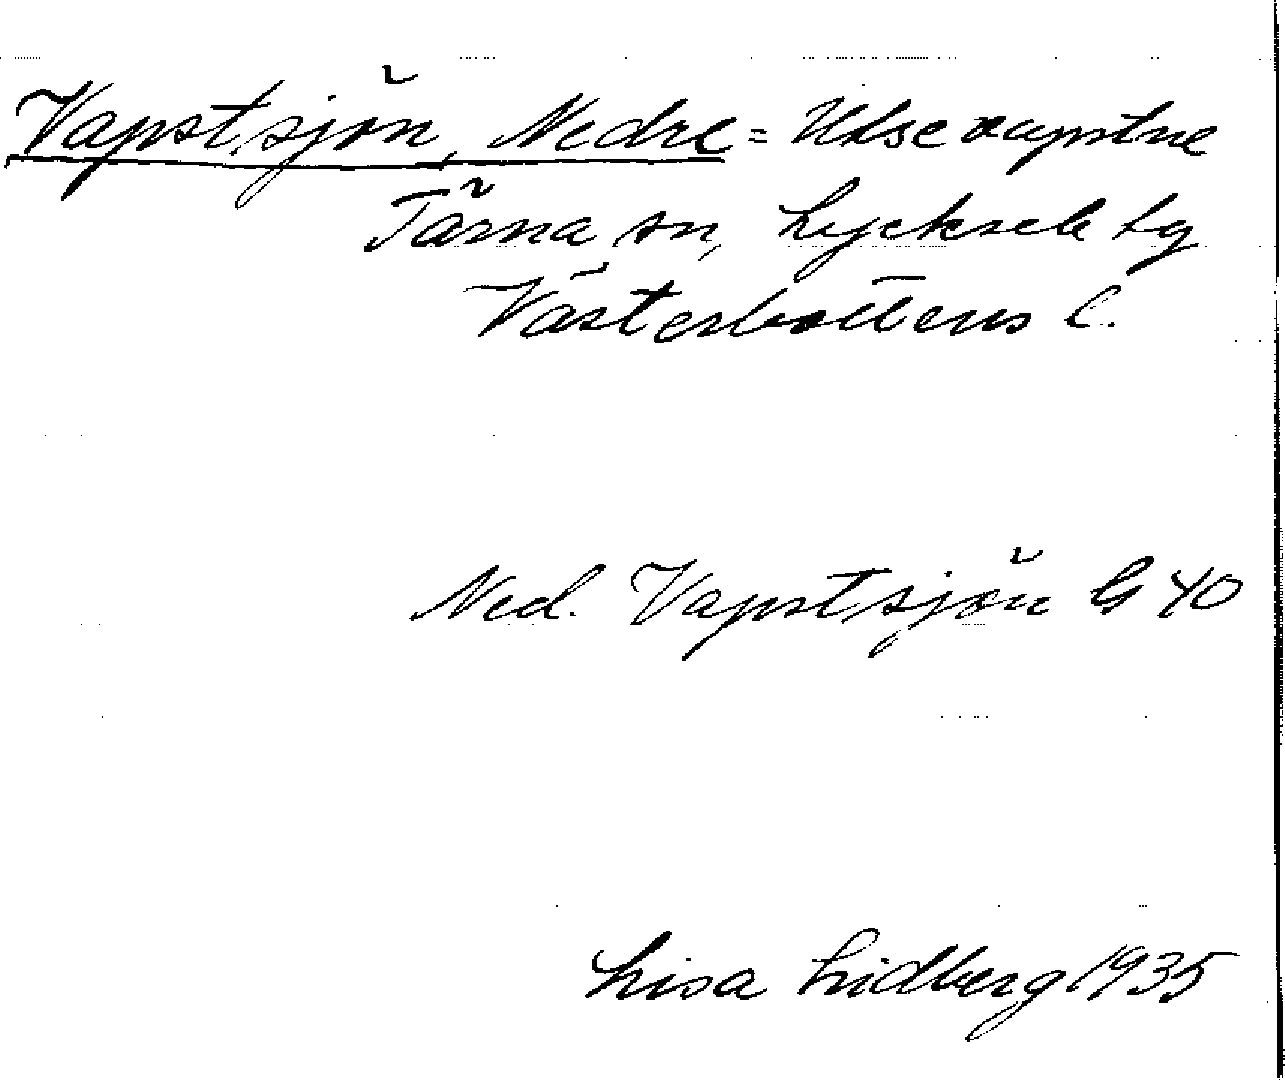 Vapstsjön, Nedre =
Tärna sn, Lycksele lg
Västerbottens l.
Ned. Vapstsjön G 40
Lisa Lidberg 1935